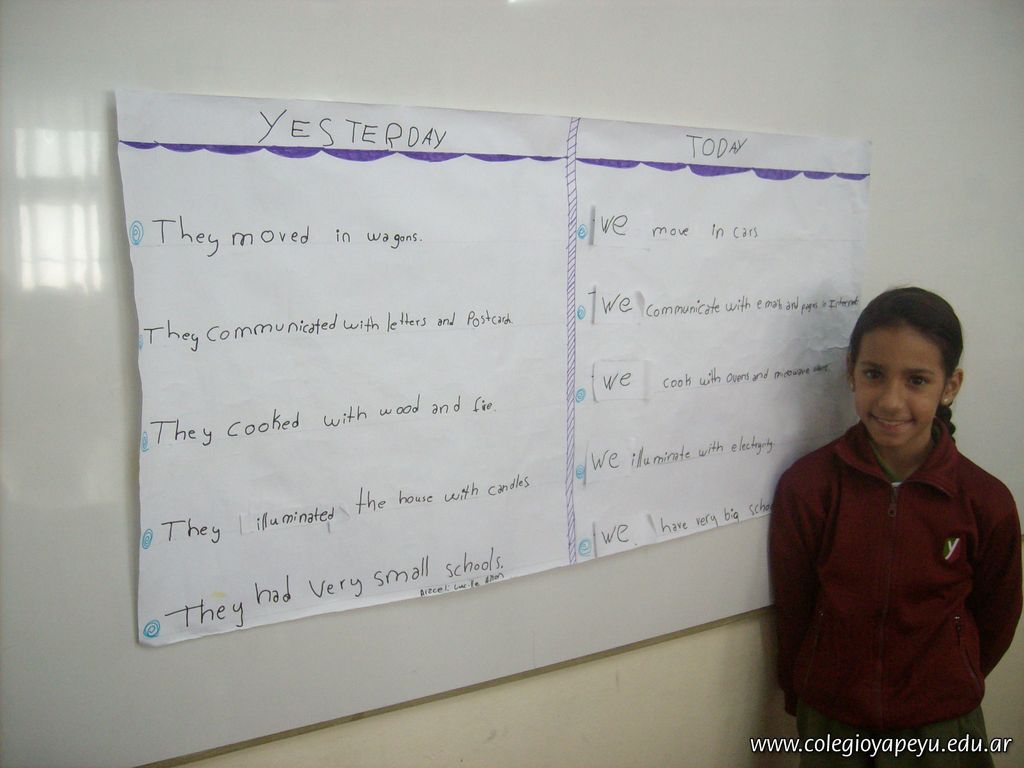 YESTERDAY
They moved in wagons.
They communicated with letters and Postcards.
They cooked with wood and fire.
They illuminated the house with candles
They had very small schools.
TODAY
we move in cars
we communicate with emails and pages in Internet
we cook with ovens and microwave
we illuminate with
we have very big
y
www.colegioyapeyu.edu.ar